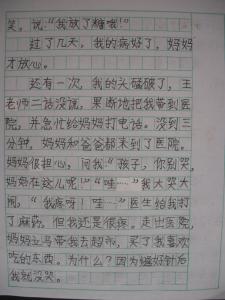 笑。说:“我放了糖哦!”
过了几天,我的病好了,妈妈
才放心。
还有一次,我的头磕破了,王
老师二话没说,果断地把我带到医
院,并急忙给妈妈打电话。没到三
分钟,妈妈和爸爸都来到了医院。
妈妈很担心,问我:“孩子,你别哭,
妈妈在这儿呢!”“哇……”我大哭大
闹,“我疼呀!哇……”医生给我打
了麻药,但我还是很疼。走出医院,
妈妈立马带我去超市,买了我喜欢
吃的东西。为什么?因为缝好针后
我就没哭。